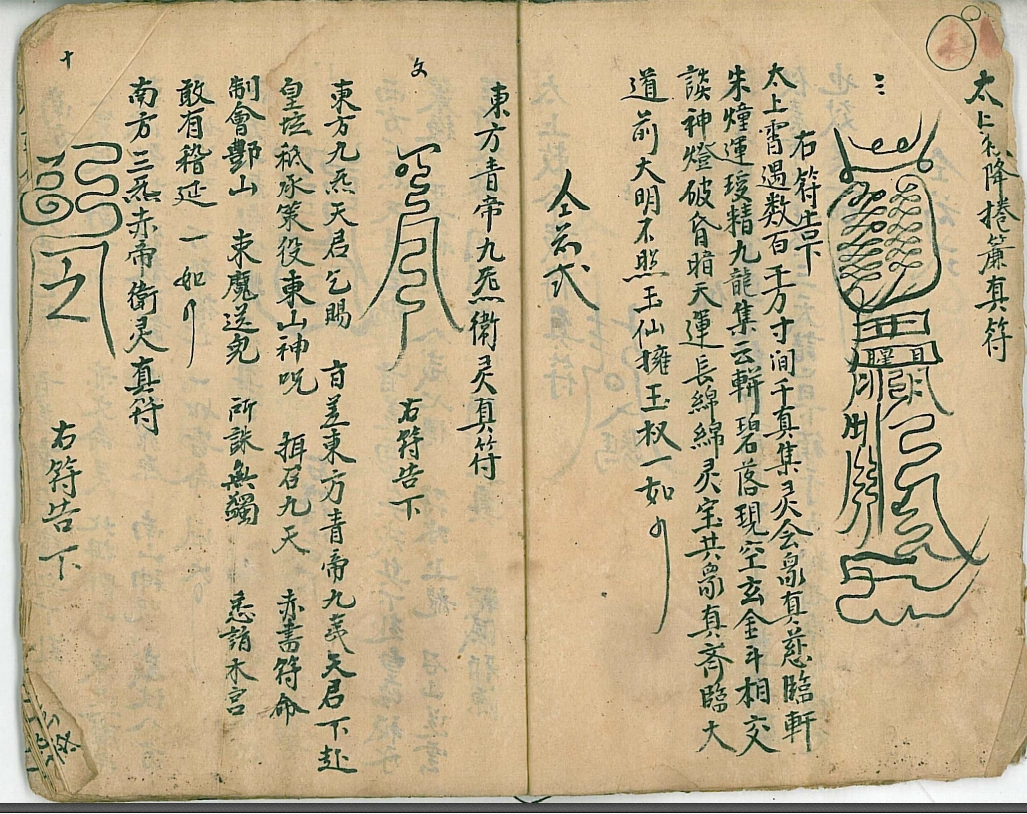 太上禾降捲簾真符
右符告下
太上霄遇数百千万寸间千真集灵会眾真慈臨軒
朱燑運璦精九龍集云輧碧落現空玄金斗相交
談神燈破昏暗天運長綿綿灵宝共眾真齐臨大
道前大明不照玉仙擁玉权一如
仝前式
東方青帝九炁衛灵真符
右符告下
東方九炁天君乞賜 盲差東方青帝九炁天君下赴
皇坛秪承策役東山神咒 揖召九天 赤書符命
制會酆山 束魔送鬼 所誅無蠲 悉詣木宮
敢有稽延 一如
南方三炁赤帝衛灵真符
右符告下
十